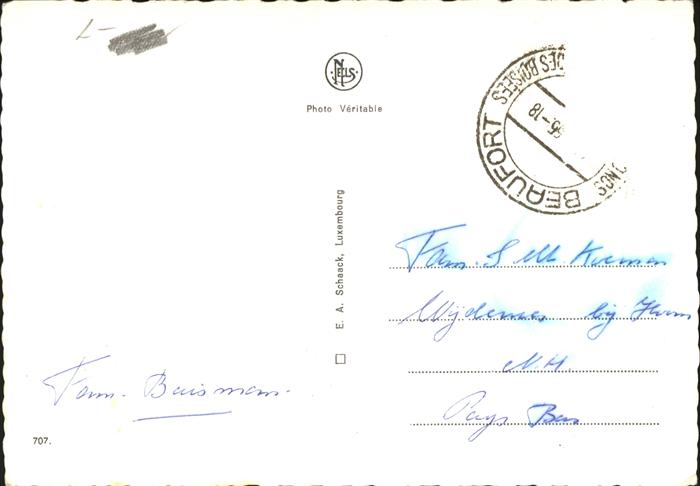 NELS
Photo Véritable
BEAUFORT
DES BOISÉES
-18
E. A. Schaack, Luxembourg
Fam. S
Wijdenes bij Hoorn
N.H.
Pays Bas
Fam. Buisman.
707.